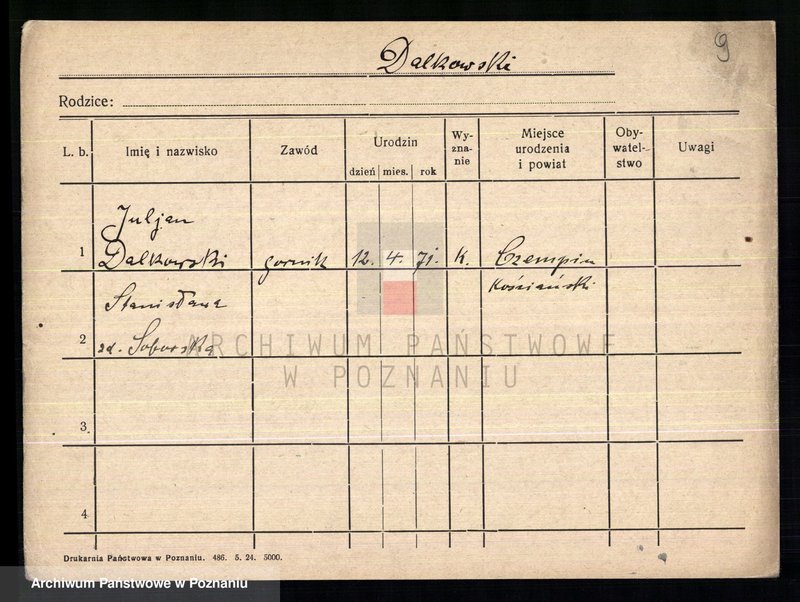 9
Dalkowski
Rodzice:
L. b. Imię i nazwisko Zawód Urodzin dzień mies. rok Wy-zna-nie Miejsce urodzenia i powiat Oby-watel-stwo Uwagi
Juljan
1 Dalkowski gornik 12. 4. 71. k. Czempin
Stanisława Kościański
2 zd. Soborska
3
4
ARCHIWUM PAŃSTWOWE
W POZNANIU
Drukarnia Państwowa w Poznaniu. 486. 5. 24. 5000.
Archiwum Państwowe w Poznaniu